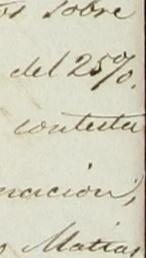 sobre
del 25%.
contesta
nacion,
Matias